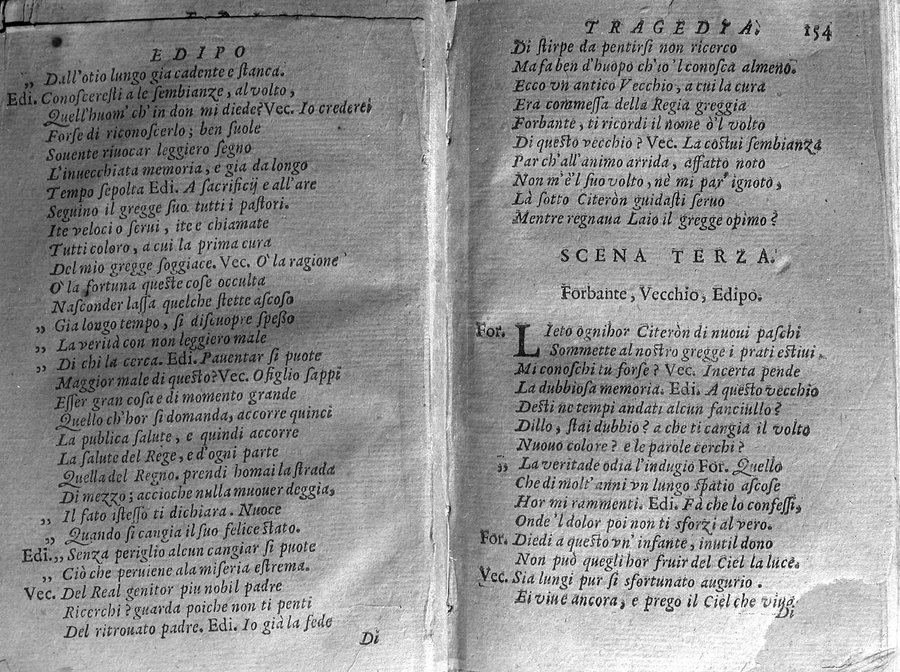 EDIPO
„ Dall'otio lungo gia cadente e ſtanca.
Edi. Conoſcereſti a le ſembianze, al volto,
Quell'huom' ch'in don mi diede? Vec. Io crederei
Forſe di riconoſcerlo; ben ſuole
Souente riuocar leggiero ſegno
L'inuecchiata memoria, e gia da longo
Tempo ſepolta Edi. A ſacrificij e all'are
Seguino il gregge ſuo tutti i paſtori.
Ite veloci o ſerui, ite e chiamate
Tutti coloro, a cui la prima cura
Del mio gregge ſoggiace. Vec. O' la ragione
O' la fortuna queſte coſe occulta
Naſconder laſſa quelche ſtette aſcoſo
„ Gia longo tempo, ſi diſcuopre ſpeßo
„ La verità con non leggiero male
„ Di chi la cerca. Edi. Pauentar ſi puote
Maggior male di queſto? Vec. O figlio ſappi
Eſſer gran coſa e di momento grande
Quello ch'hor ſi domanda, accorre quinci
La publica ſalute, e quindi accorre
La ſalute del Rege, e d'ogni parte
Quella del Regno. prendi homai la ſtrada
Di mezzo; accioche nulla muouer deggia,
„ Il fato iſteſſo ti dichiara. Nuoce
„ Quando ſi cangia il ſuo felice ſtato.
Edi. „ Senza periglio alcun cangiar ſi puote
„ Ciò che peruiene a la miſeria eſtrema.
Vec. Del Real genitor piu nobil padre
Ricerchi? guarda poiche non ti penti
Del ritrouato padre. Edi. Io già la fede
Di
TRAGEDIA. 154
Di ſtirpe da pentirſi non ricerco
Ma fa ben d'huopo ch'io 'l conoſca almeno.
Ecco vn antico Vecchio, a cui la cura
Era commeſſa della Regia greggia
Forbante, ti ricordi il nome ò'l volto
Di queſto vecchio? Vec. La coſtui ſembianza
Par ch'all'animo arrida, affatto noto
Non m'è'l ſuo volto, nè mi par' ignoto,
Là ſotto Citeròn guidaſti ſeruo
Mentre regnaua Laio il gregge opimo?
SCENA TERZA.
Forbante, Vecchio, Edipo.
For. Lieto ognihor Citeròn di nuoui paſchi
Sommette al noſtro gregge i prati eſtiui,
Mi conoſchi tu forſe? Vec. Incerta pende
La dubbioſa memoria. Edi. A queſto vecchio
Deſti ne tempi andati alcun fanciullo?
Dillo, ſtai dubbio? a che ti cangia il volto
Nuouo colore? e le parole cerchi?
„ La veritade odia l'indugio For. Quello
Che di molt'anni vn lungo ſpatio aſcoſe
Hor mi rammenti. Edi. Fà che lo confeſſi,
Onde 'l dolor poi non ti sforzi al vero.
For. Diedi a queſto vn' infante, inutil dono
Non può quegli hor fruir del Ciel la luce.
Vec. Sia lungi pur ſi sfortunato augurio.
Ei viue ancora, e prego il Ciel che viua
Di